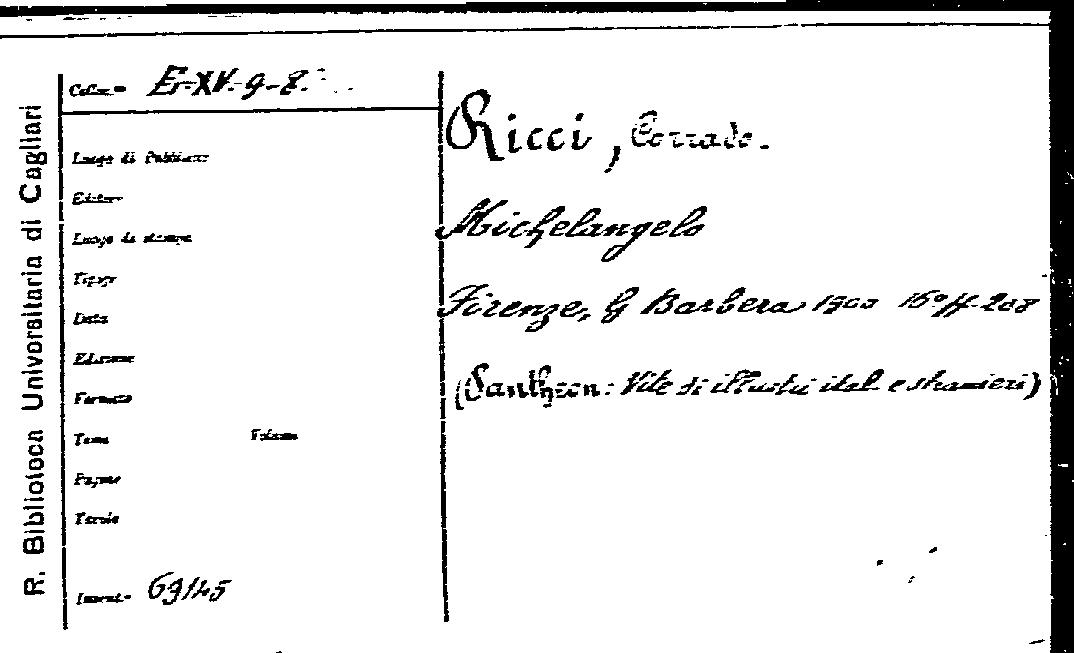 R. Biblioteca Universitaria di Cagliari
Colloc.ne Er-XV-9-8.
Luogo di Pubblicaz.
Editore
Luogo di stampa
Tipogr.
Data
Edizione
Formato
Tomo Volume
Pagine
Tavole
Invent.
Ricci, Corrado.
Michelangelo
Firenze, G Barbera 1900 16° pp. 208
(Pantheon: Vite di illustri ital. e stranieri)